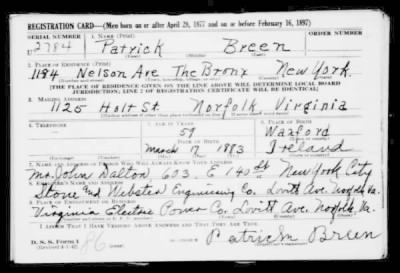 REGISTRATION CARD—(Men born on or after April 28, 1877 and on or before February 16, 1897)
SERIAL NUMBER 1. NAME (Print) ORDER NUMBER
U 2784 Patrick Breen
(First) (Middle) (Last)
2. PLACE OF RESIDENCE (Print)
1184 Nelson Ave The Bronx New York.
[THE PLACE OF RESIDENCE GIVEN ON THE LINE ABOVE WILL DETERMINE LOCAL BOARD
JURISDICTION; LINE 2 OF REGISTRATION CERTIFICATE WILL BE IDENTICAL]
3. MAILING ADDRESS
1125 Holt St Norfolk Virginia
4. TELEPHONE 5. AGE IN YEARS 6. PLACE OF BIRTH
59 Waxford
DATE OF BIRTH
March 17 1883 Ireland
7. NAME AND ADDRESS OF PERSON WHO WILL ALWAYS KNOW YOUR ADDRESS
Mr. John Dalton 603. E 140 St New York City
8. EMPLOYER'S NAME AND ADDRESS
Stone and Webster Engineering Co. Lovitt Ave. Norfolk Va.
9. PLACE OF EMPLOYMENT OR BUSINESS
Virginia Electric Power Co. Lovitt Ave. Norfolk, Va.
I AFFIRM THAT I HAVE VERIFIED ABOVE ANSWERS AND THAT THEY ARE TRUE.
D. S. S. Form 1
(Revised 4-1-42)
Patrick Breen